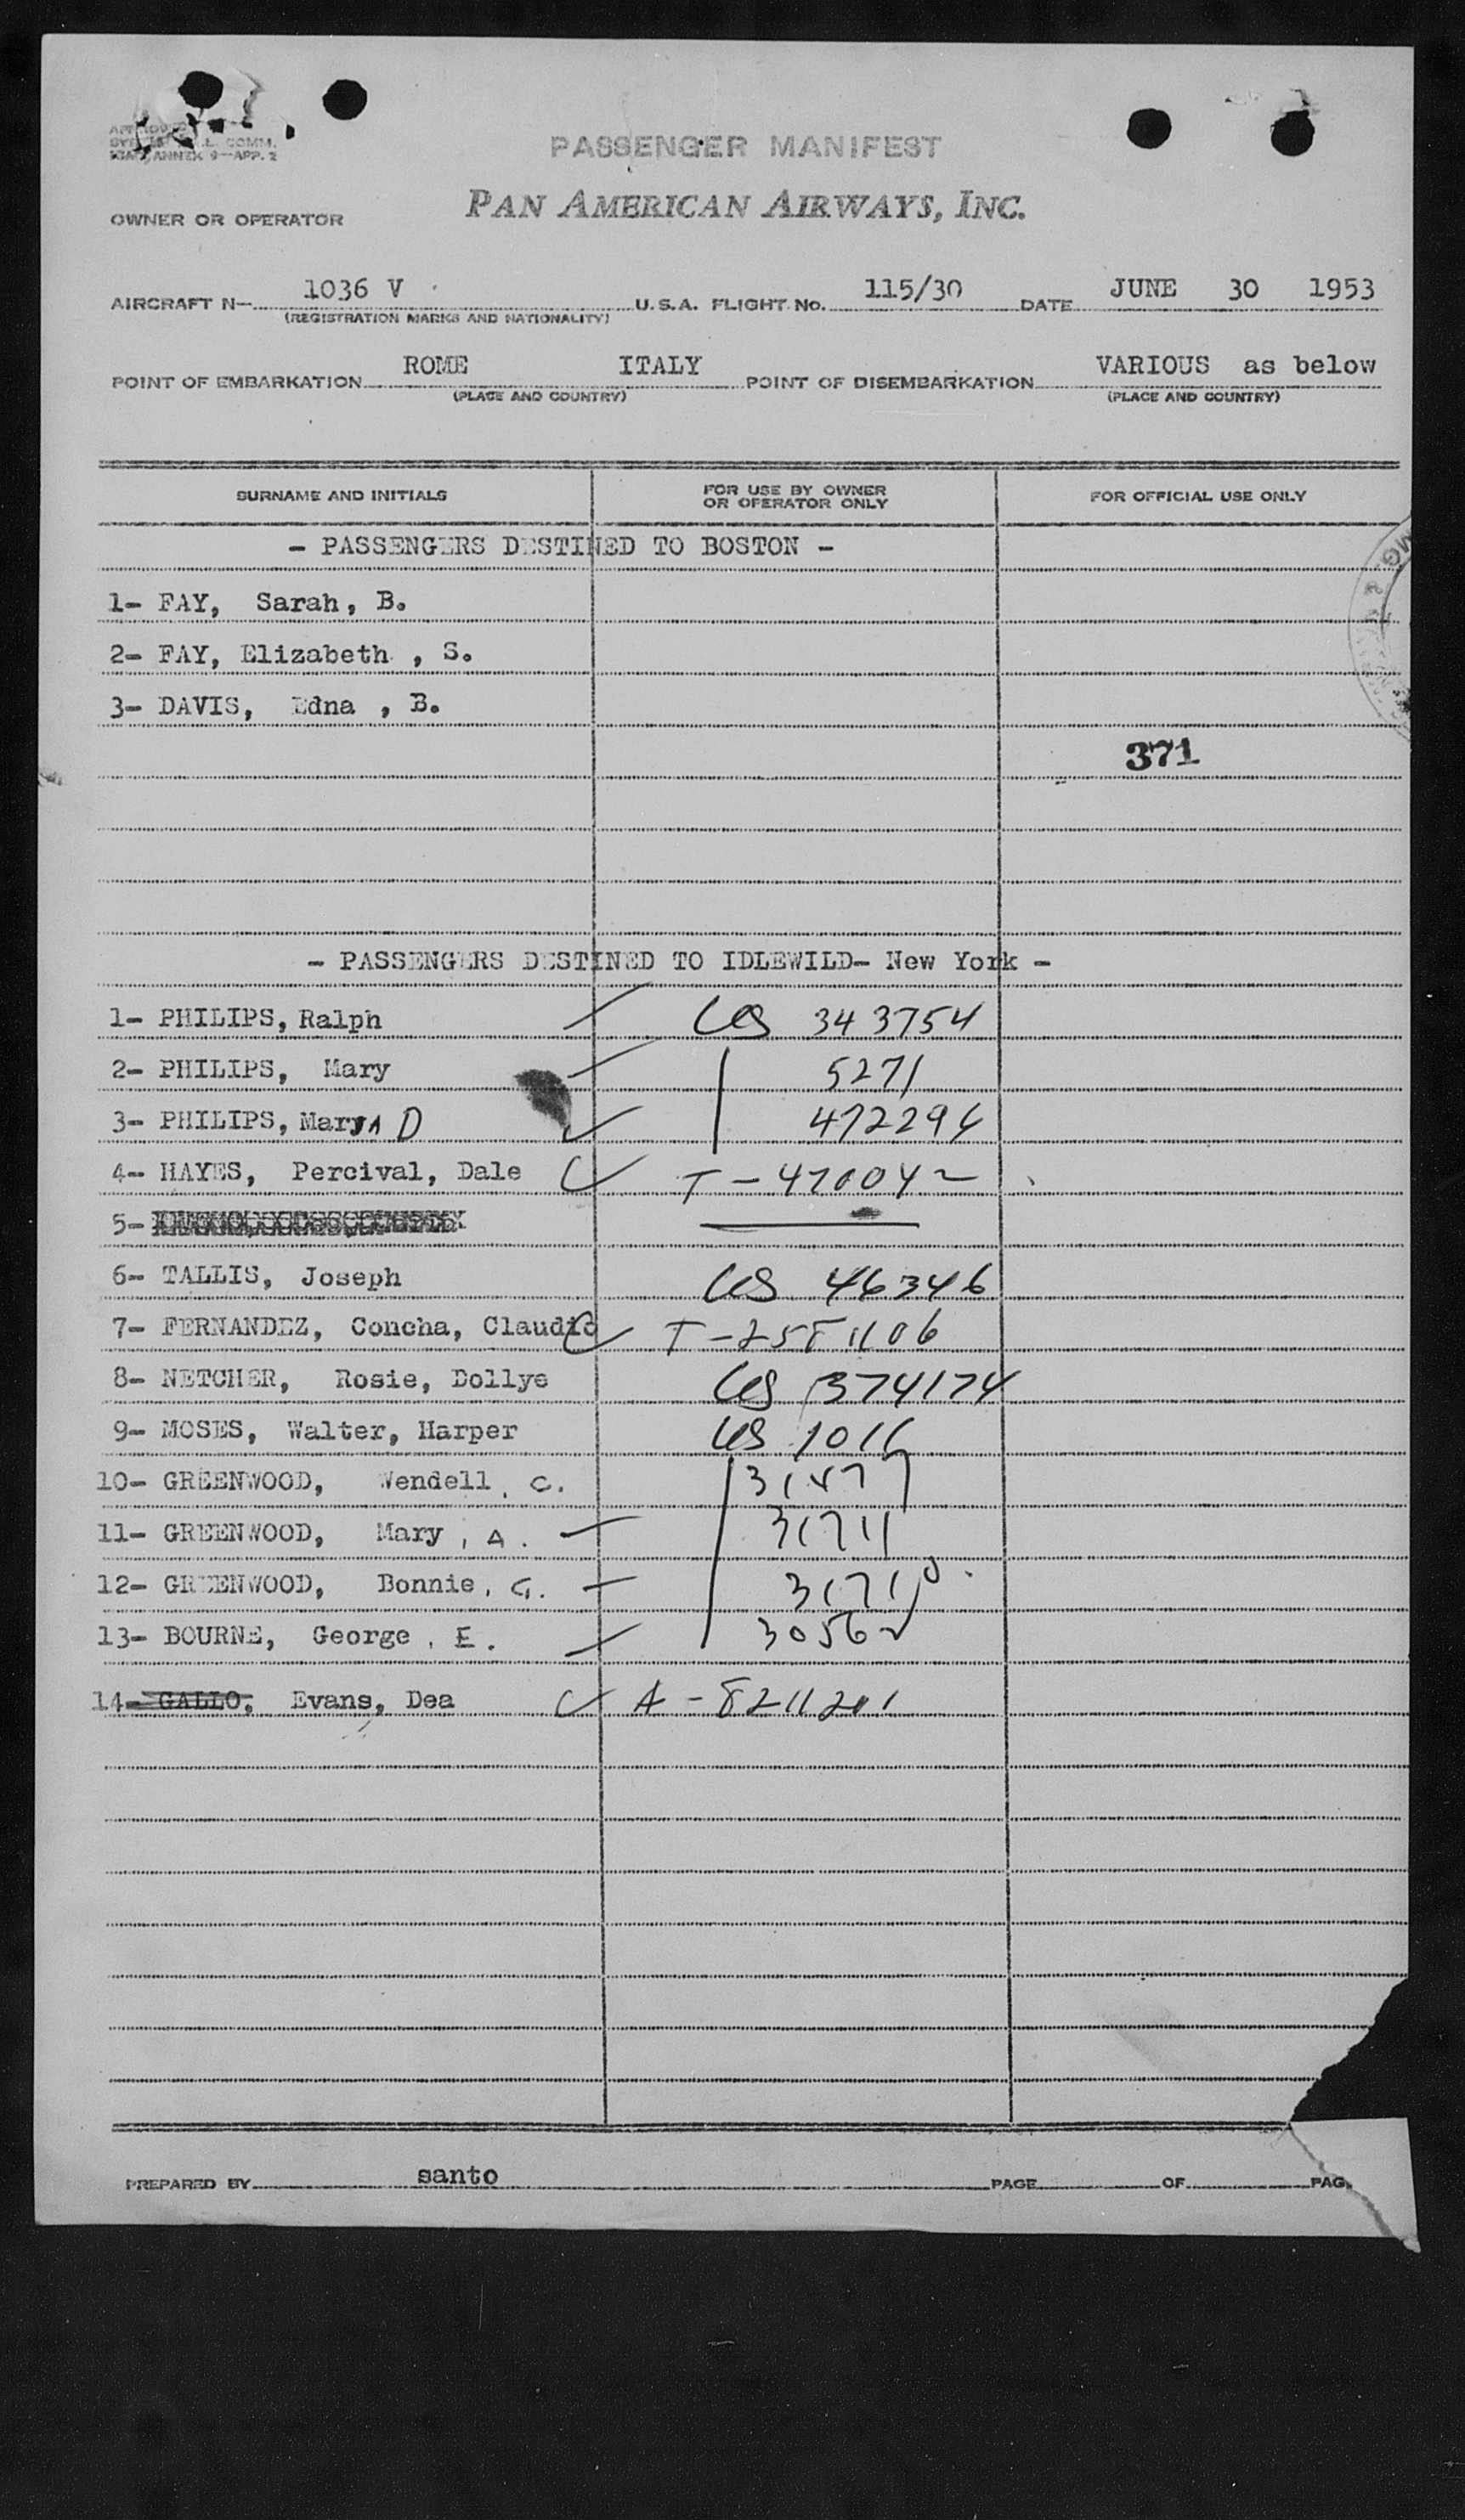 COMM.
ANNEX 9—APP. 2
PASSENGER MANIFEST
OWNER OR OPERATOR PAN AMERICAN AIRWAYS, INC.
AIRCRAFT N— 1036 V U.S.A. FLIGHT No. 115/30 DATE JUNE 30 1953
(REGISTRATION MARKS AND NATIONALITY)
POINT OF EMBARKATION ROME ITALY POINT OF DISEMBARKATION VARIOUS as below
(PLACE AND COUNTRY) (PLACE AND COUNTRY)
SURNAME AND INITIALS FOR USE BY OWNER OR OPERATOR ONLY FOR OFFICIAL USE ONLY
- PASSENGERS DESTINED TO BOSTON -
1- FAY, Sarah, B.
2- FAY, Elizabeth , S.
3- DAVIS, Edna , B.
371
- PASSENGERS DESTINED TO IDLEWILD- New York -
1- PHILIPS, Ralph US 343754
2- PHILIPS, Mary 5271
3- PHILIPS, Mary D 472296
4- HAYES, Percival, Dale T-470042
5-
6- TALLIS, Joseph US 46346
7- FERNANDEZ, Concha, Claudio T-2581106
8- NETCHER, Rosie, Dollye US 374174
9- MOSES, Walter, Harper US 1016
10- GREENWOOD, Wendell, C.
11- GREENWOOD, Mary, A. 31711
12- GREENWOOD, Bonnie, G. 31710
13- BOURNE, George, E. 30562
14- GALLO, Evans, Dea A-8211201
PREPARED BY santo PAGE OF PAG